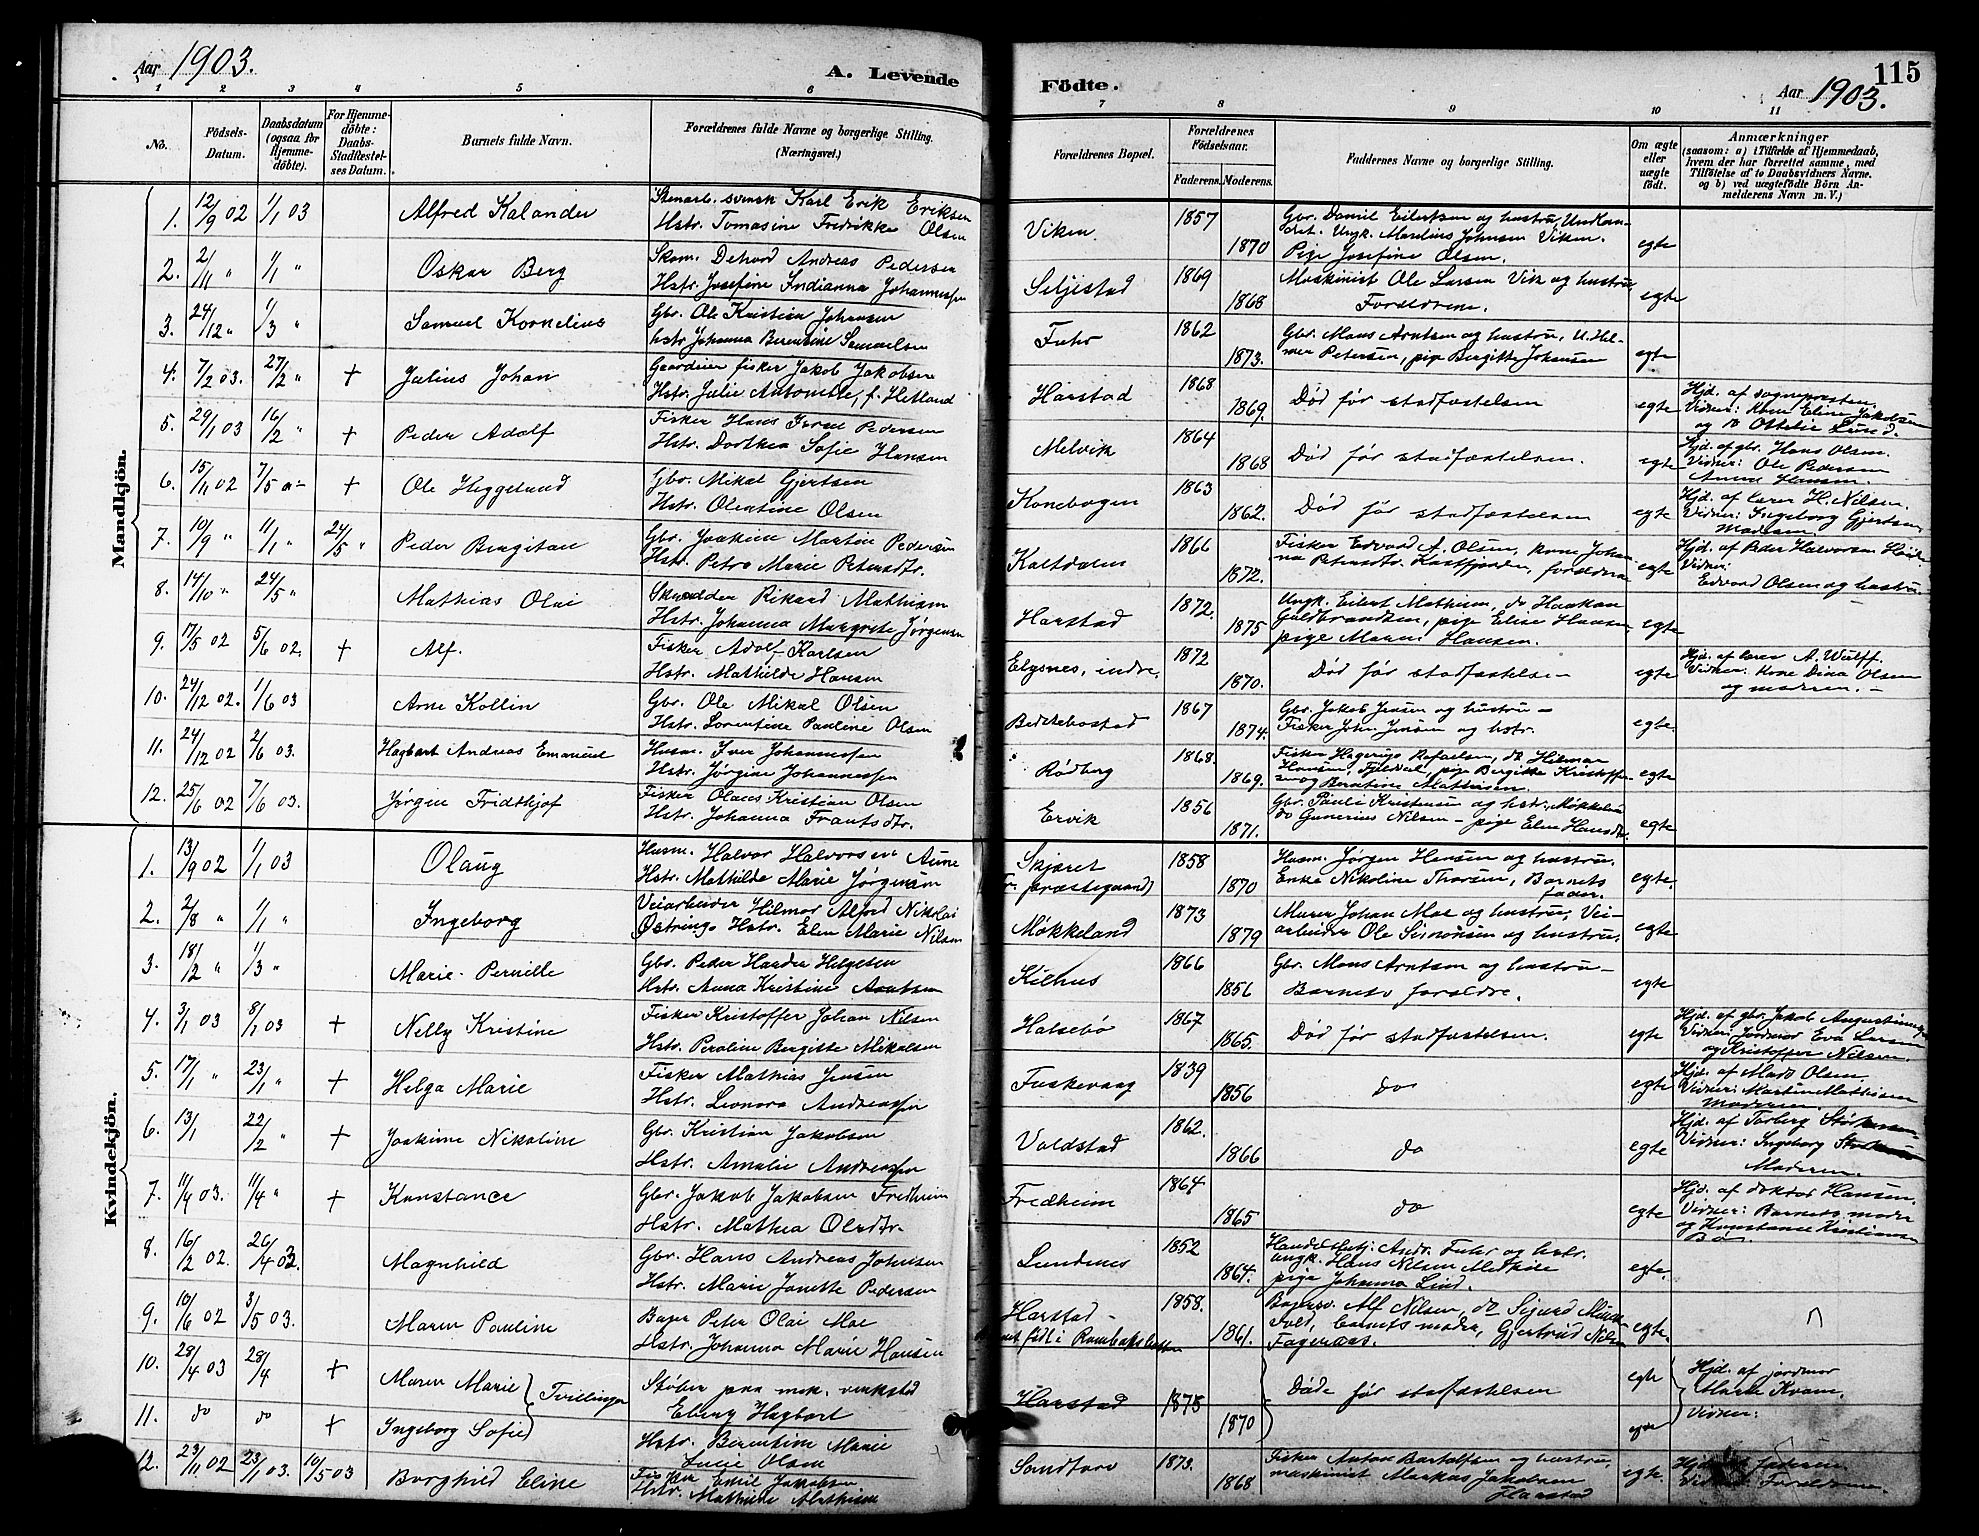 Aar 1903. A. Levende
Födte. Aar 1903. 115
1 2 3 4 5 6 7 8 9 10 11
No.
Födsels-
Datum.
Daabsdatum
(ogsaa for
Hjemme-
döbte).
For Hjemme-
döbte:
Daabs-
Stadfæstel-
ses Datum.
Barnets fulde Navn.
Forældrenes fulde Navne og borgerlige Stilling.
(Næringsvei.)
Forældrenes Bopæl.
Forældrenes
Födselsaar.
Faderens. Moderens.
Faddernes Navne og borgerlige Stilling.
Om ægte
eller
uægte
födt.
Anmærkninger
(saasom: a) i Tilfælde af Hjemmedaab,
hvem der har forrettet samme, med
Tilföielse af to Daabsvidners Navne.
og b) ved uægtefödte Börn An-
melderens Navn m. V.)
Mandkjön.
1. 12/9 02 1/1 03 Alfred Kalander
Stenarb. svensk Karl Erik Eriksen
Hstr. Tomasine Fredrikke Olsen
Viken 1857 1870
Gbr. Daniel Eilertsen og hustru,
Ungk. Marelius Johnsen Viken.
Pige Josefine Olsen.
egte
2. 2/11 " 1/1 " Oskar Berg
Skom. Dehard Andreas Pedersen
Hstr. Josefine Indianna Johannessen
Seljestad 1869 1868
Maskinist Ole Larsen Vik og hustru,
Forældrene.
egte
3. 24/12 " 1/3 " Samuel Kornelius
Gbr. Ole Kristian Johansen
hstr Johanna Berentine Samuelsen
Fuhr 1862 1873.
Gbr. Mons Arntsen og hustru, U. Hel-
mer Petersen, pige Bergitte Johansen
egte
4. 7/2 03. 27/2 " + Julius Johan
Gaardeier fisker Jakob Jakobsen
Hstr. Julie Antonette, f. Hetland
Harstad 1868 1869.
Död för stadfæstelsen
egte
Hjd. af sognepresten.
Vidner: Kone Eline Jakobsen
og do Ottelie Lund.
5. 29/1 03 16/2 " + Peder Adolf
Fisker Hans Pedersen
Hstr. Dorthea Sofie Hansen
Melvik 1864 1868
Död för stadfæstelsen.
egte
Hjd. af gbr. Hans Olsen.
Vidner: Ole Pedersen
Anna Hansen.
6. 15/11 02 7/5 + Ole Heggelund
Gbr. Mikal Gjertsen
Hstr. Olentine Olsen
Konebogen 1863 1862.
Död för stadfæstelsen
egte
Hjd. af lærer H. Nilsen.
Vidner: Ingeborg Gjertsen
7. 10/9 " 11/1 " 24/5 " Peder Bergitan
Gbr. Joakim Martin Pedersen
Hstr. Petra Marie Petersdtr.
Kaltdalen 1866 1872.
Fisker Edvard A. Olsen, kone Johan-
na Petersdtr. Kastfjorden, forældrene
egte
Hjd. af Peder Halvorsen
Vidner:
Edvard Olsen og hustru
8. 14/10 " 24/5 " Mathias Olai
Skrædder Rikard Mathisen
Hstr. Johanna Margrete Jørgensen
Harstad 1872. 1875
Ungk. Eilert Mathisen, do Haakan
Guldbrandsen, pige Elise Hansen,
pige Marie Hansen.
egte
9. 17/5 02 5/6 02. + Alf.
Fisker Adolf Karlsen
Hstr. Mathilde Hansen
Elgsnes, indre. 1872 1870.
Död för stadfæstelse -
egte
Hjd. af lærer A. Wulff.
Vidner: Kone Dina Olsen
og moderen. -
10. 24/12 02. 1/6 03 Arne Kollin
Gbr. Ole Mikal Olsen
Hstr. Lorentine Pauline Olsen
Bedstebostad 1867 1874.
Gbr. Jakob Jensen og hustru -
Fisker John Jensen og hstr.
egte
11. 24/12 02 2/6 03. Hagbart Andreas Emanuel
Husm. Iver Johannessen
Hstr. Jørgine Johannessen
Rödberg 1868. 1869.
Fisker Hagerup Rafaelsen, do Hilmar
Hansen, pige Bergitte Kristoffer-
sen og Berntine Mathisen.
egte
12. 25/6 02 7/6 03. Jørgen Fridthjof
Fisker Olaus Kristian Olsen
Hstr. Johanna Frantsdtr.
Ervik 1856 1871.
Gbr. Paul Kristensen og hstr. Møkkeland
do Gunerius Nilsen - pige Elen Hansdtr.
egte
Kvindekjön.
1. 13/9 02 1/1 03 Olaug
Husm. Halvor Halvorsen Aune
Hstr. Mathilde Marie Jörgensen
Skjæret
(Tr. præstegaard) 1858 1870
Husm. Jørgen Hensen og hustru.
Enke Nikoline Thoresen, Barnets
fader.
egte.
2. 2/8 " 1/1 " Ingeborg
Veiarbeider Hilmar Alfred Nikolai
Østrings Hstr. Elen Marie Nilsen
Møkkeland 1873 1879
Murer Johan Moe og hustru, Vei-
arbeider Ole Simonsen og hustru.
egte
3. 18/2 " 1/3 " Marie Pernille
Gbr. Peder Harder Helgesen
Hstr. Anna Kristine Arntsen
Kilhus 1866 1856
Gbr. Mons Arntsen og hustru -
Barnets forældre.
egte
4. 3/1 03 8/1 03 + Nelly Kristine
Fisker Kristoffer Johan Nilsen
Hstr. Peroline Bergitte Mikalsen
Halsebø 1867 1865.
Död för stadfæstelsen.
egte
Hjd. af gbr. Jakob Augustinussen
Vidner: Jordmor Eva Larsen
og Kristoffer Nilsen.
5. 17/1 " 23/1 " + Helga Marie
Fisker Mathias Jensen
Hstr. Leonora Andreassen
Fuskevaag 1839 1856
do
egte
Hjd. af Mads Olsen
Vidner: Martin Mathisen
Moderen
6. 13/1 22/2 " + Joakime Nikoline
Gbr. Kristian Jakobsen
Hstr. Amalie Andreassen
Voldstad 1862. 1866
do
egte
Hjd. af Torberg
Vidner: Ingeborg
Moderen.
7. 11/4 03. 11/4 " + Konstance
Gbr. Jakob Jakobsen Fredheim
Hstr. Mathea Olsdtr.
Fredheim 1864 1865
do
egte
Hjd. af doktor Hansen.
Vidner: Barnets moder
og Konstanse Kristiansen
Bø
8. 16/2 02. 26/4 03. Magnhild
Gbr. Hans Andreas Johnsen
Hstr. Marie Jonette Pedersen
Lundenes 1852 1864.
Handelsbetj. Andr. Fuhr og hstr.
Ungk. Hans Nilsen Melkiæ
pige Johanna Lind.
egte.
9. 10/6 02 3/5 03. Maren Pauline
Bager Peter Olai Moe
Hstr. Johanna Marie Hansen
Harstad -
födt i Rombaksbotten 1858. 1861.
Bagersv. Alf Nilsen, do Sigurd
barnets moder, Gjertrud Nilsen
Fagernæs.
egte.
10. 28/4 03 28/4 + Maren Marie
11. do do + Ingeborg Sofie
Tvillinger
Støber paa mek. verksted
Eberg Hagbart
Hstr. Berentine Marie
Lucie Olsen
Harstad 1875 1870
Döde för stadfæstelsen
egte
egte
Hjd. af jordmor
Marie Kvam.
Vidner:
12. 23/11 02 23/1 03. 10/5 03 Borghild Eline
Fisker Emil Jakobsen
Hstr. Mathilde Mathisen
Sandtorv 1873. 1868
Fisker Anton Bertolfsen og hustru,
maskinist Markus Jakobsen
Harstad
egte.
Hjd. af faderen
Forældrene